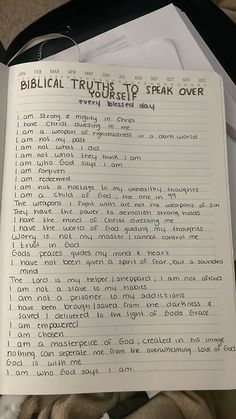 JAN FEB MAR APR MAY JUN JUL AUG SEP OCT NOV DEC
BIBLICAL TRUTHS TO SPEAK OVER
YOURSELF
every blessed day
I am strong & mighty in Christ
I have Christ dwelling in me
I am a weapon of righteousness in a dark world
I am not my past
I am not what I did
I am not what they think I am
I am who God says I am
I am forgiven
I am redeemed
I am not a hostage to my unhealthy thoughts
I am a child of God, the one in 99
The weapons I fight with are not the weapons of sin
They have the power to demolish strong holds
I have the mind of Christ directing me
I have the world of God guiding my thoughts
Worry is not my master I cannot control me
I trust in God
Gods peace guides my mind & heart
I have not been given a spirit of fear, but a sounded
mind
The Lord is my helper, sheppard, I am not afraid
I am not a slave to my habits
I am not a prisoner to my addictions
I have been brought/saved from the darkness &
saved I delivered to the light of Gods Grace
I am empowered
I am chosen
I am a masterpeice of God, created in his image
nothing can seperate me from the overwhelming love of God
God is with me
I am who God says I am